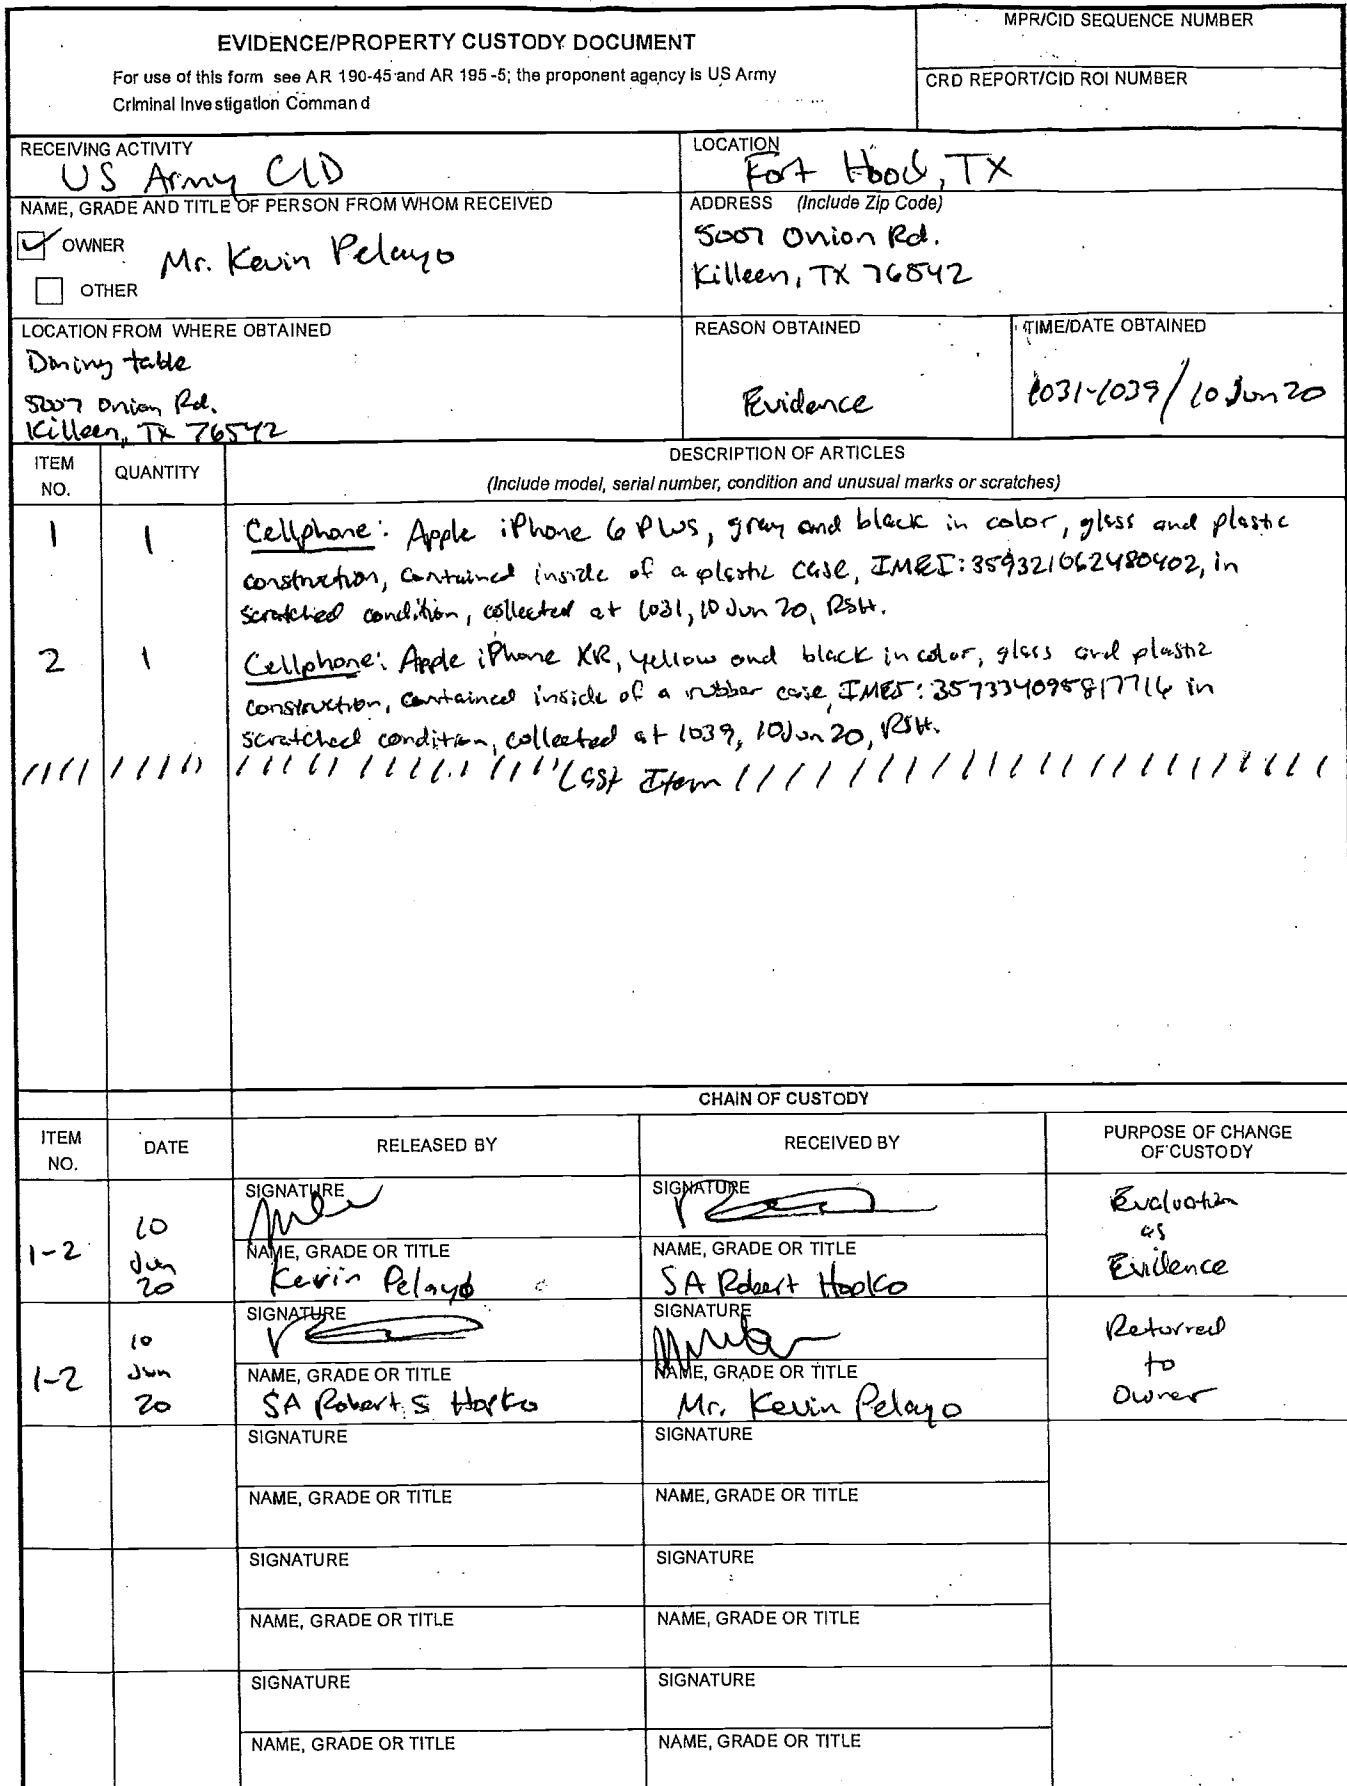 EVIDENCE/PROPERTY CUSTODY DOCUMENT
For use of this form see AR 190-45 and AR 195-5; the proponent agency is US Army
Criminal Investigation Command
MPR/CID SEQUENCE NUMBER
CRD REPORT/CID ROI NUMBER
RECEIVING ACTIVITY
US Army CID
LOCATION
Fort Hood, TX
NAME, GRADE AND TITLE OF PERSON FROM WHOM RECEIVED
OWNER
Mr. Kevin Pelayo
OTHER
ADDRESS (Include Zip Code)
5007 Onion Rd.
Killeen, TX 76542
LOCATION FROM WHERE OBTAINED
Dining table
5007 Onion Rd.
Killeen, TX 76542
REASON OBTAINED
Evidence
TIME/DATE OBTAINED
1031-1039/10 Jun 20
ITEM NO.
QUANTITY
DESCRIPTION OF ARTICLES
(Include model, serial number, condition and unusual marks or scratches)
1 1 Cellphone: Apple iPhone 6 Plus, gray and black in color, glass and plastic
construction, contained inside of a plastic case, IMEI: 359321062480402, in
scratched condition, collected at 1031, 10 Jun 20, RSH.
2 1 Cellphone: Apple iPhone XR, yellow and black in color, glass and plastic
construction, contained inside of a rubber case, IMEI: 357334095817716 in
scratched condition, collected at 1039, 10 Jun 20, RSH.
///// ///// ///// Last Item /////////////////////
CHAIN OF CUSTODY
ITEM NO.
DATE
RELEASED BY
RECEIVED BY
PURPOSE OF CHANGE
OF CUSTODY
1-2
10
Jun
20
SIGNATURE
NAME, GRADE OR TITLE
Kevin Pelayo
SIGNATURE
NAME, GRADE OR TITLE
SA Robert Hopko
Evaluation
as
Evidence
1-2
10
Jun
20
SIGNATURE
NAME, GRADE OR TITLE
SA Robert S Hopko
SIGNATURE
NAME, GRADE OR TITLE
Mr. Kevin Pelayo
Returned
to
Owner
SIGNATURE
NAME, GRADE OR TITLE
SIGNATURE
NAME, GRADE OR TITLE
SIGNATURE
NAME, GRADE OR TITLE
SIGNATURE
NAME, GRADE OR TITLE
SIGNATURE
NAME, GRADE OR TITLE
SIGNATURE
NAME, GRADE OR TITLE